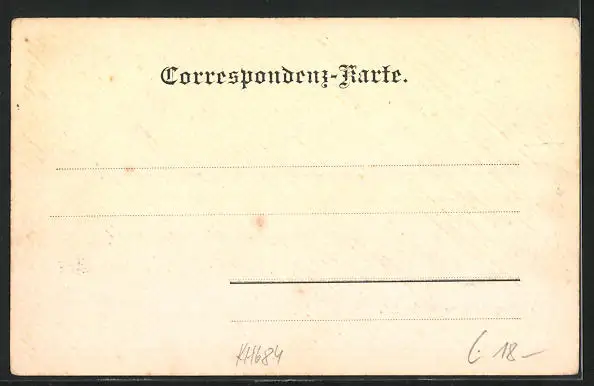 Correspondenz-Karte.
KH684
18-